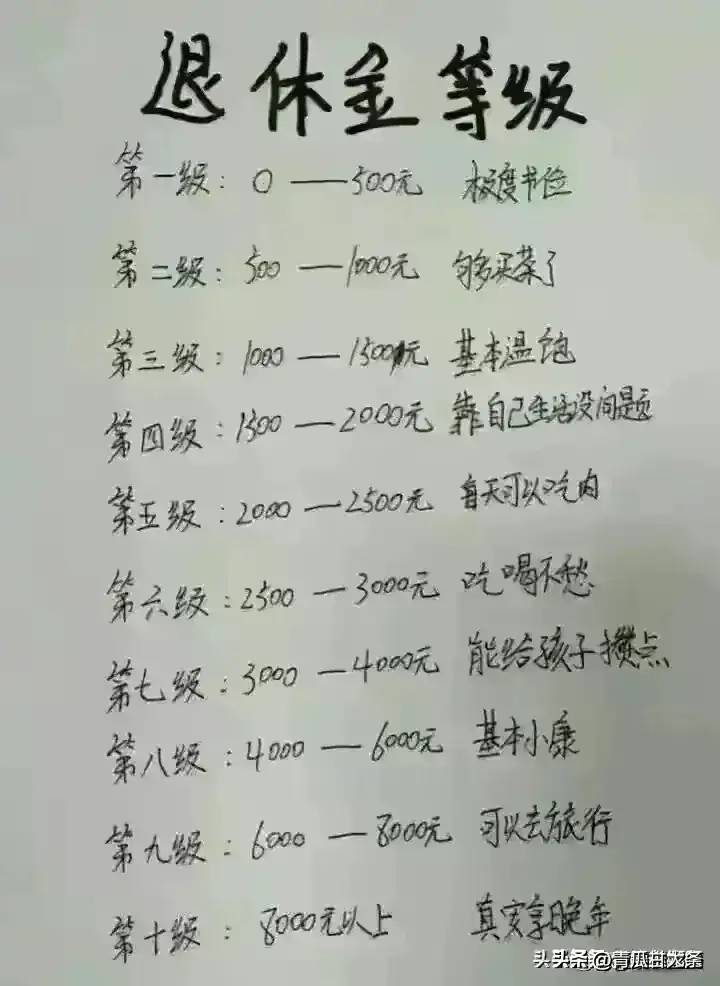 退休金等级
第一级：0——500元 极度节俭
第二级：500——1000元 够多买菜了
第三级：1000——1500元 基本温饱
第四级：1500——2000元 靠自己生活没问题
第五级：2000——2500元 每天可以吃肉
第六级：2500——3000元 吃喝不愁
第七级：3000——4000元 能给孩子攒点
第八级：4000——6000元 基本小康
第九级：6000——8000元 可以去旅行
第十级：8000元以上 真实享晚年
头条@青瓜